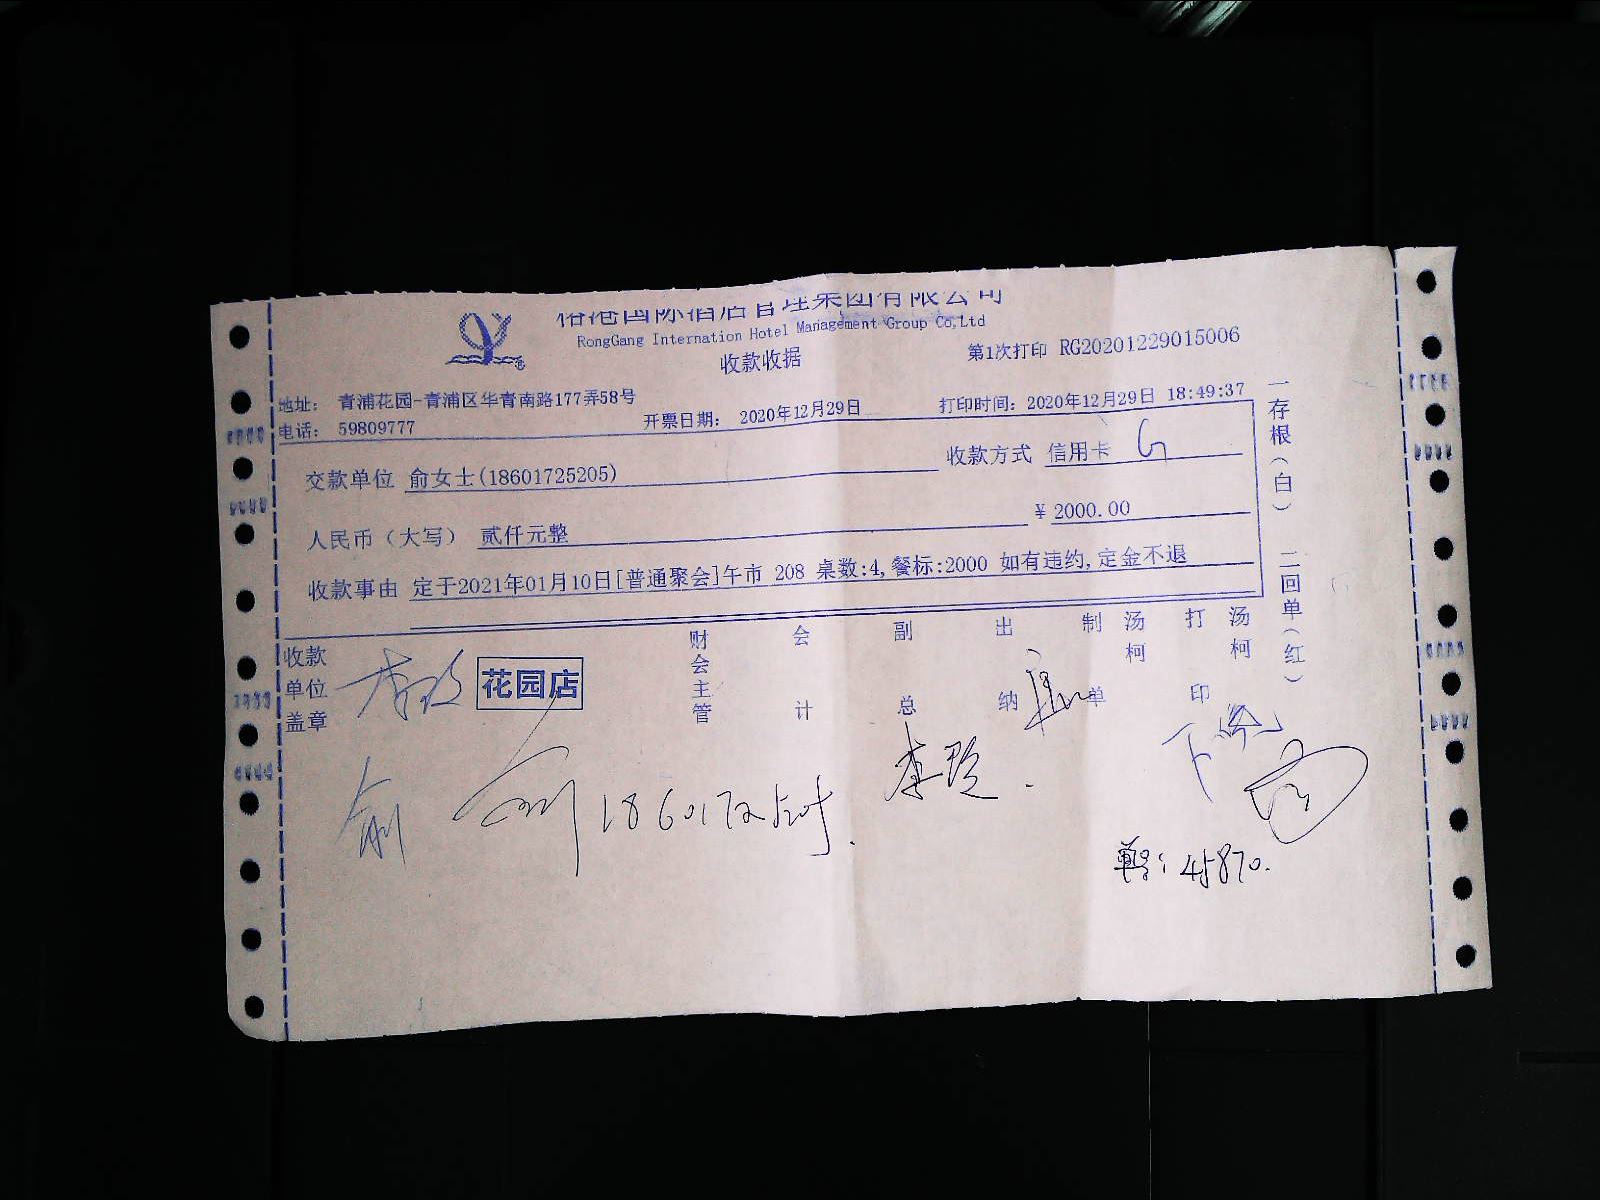 格港国际酒店管理集团有限公司
RongGang Internation Hotel Management Group Co,Ltd
收款收据
第1次打印 RG20201229015006
地址： 青浦花园-青浦区华青南路177弄58号
电话： 59809777
开票日期： 2020年12月29日
打印时间：2020年12月29日 18:49:37
交款单位 俞女士(18601725205)
收款方式 信用卡
人民币（大写） 贰仟元整
¥ 2000.00
收款事由 定于2021年01月10日[普通聚会]午市 208 桌数:4,餐标:2000 如有违约,定金不退
一存根（白） 二回单（红）
收款单位盖章
花园店
财会主管
会计
副总
出纳
制单
汤柯
打印
汤柯
俞
李
单号：45870.